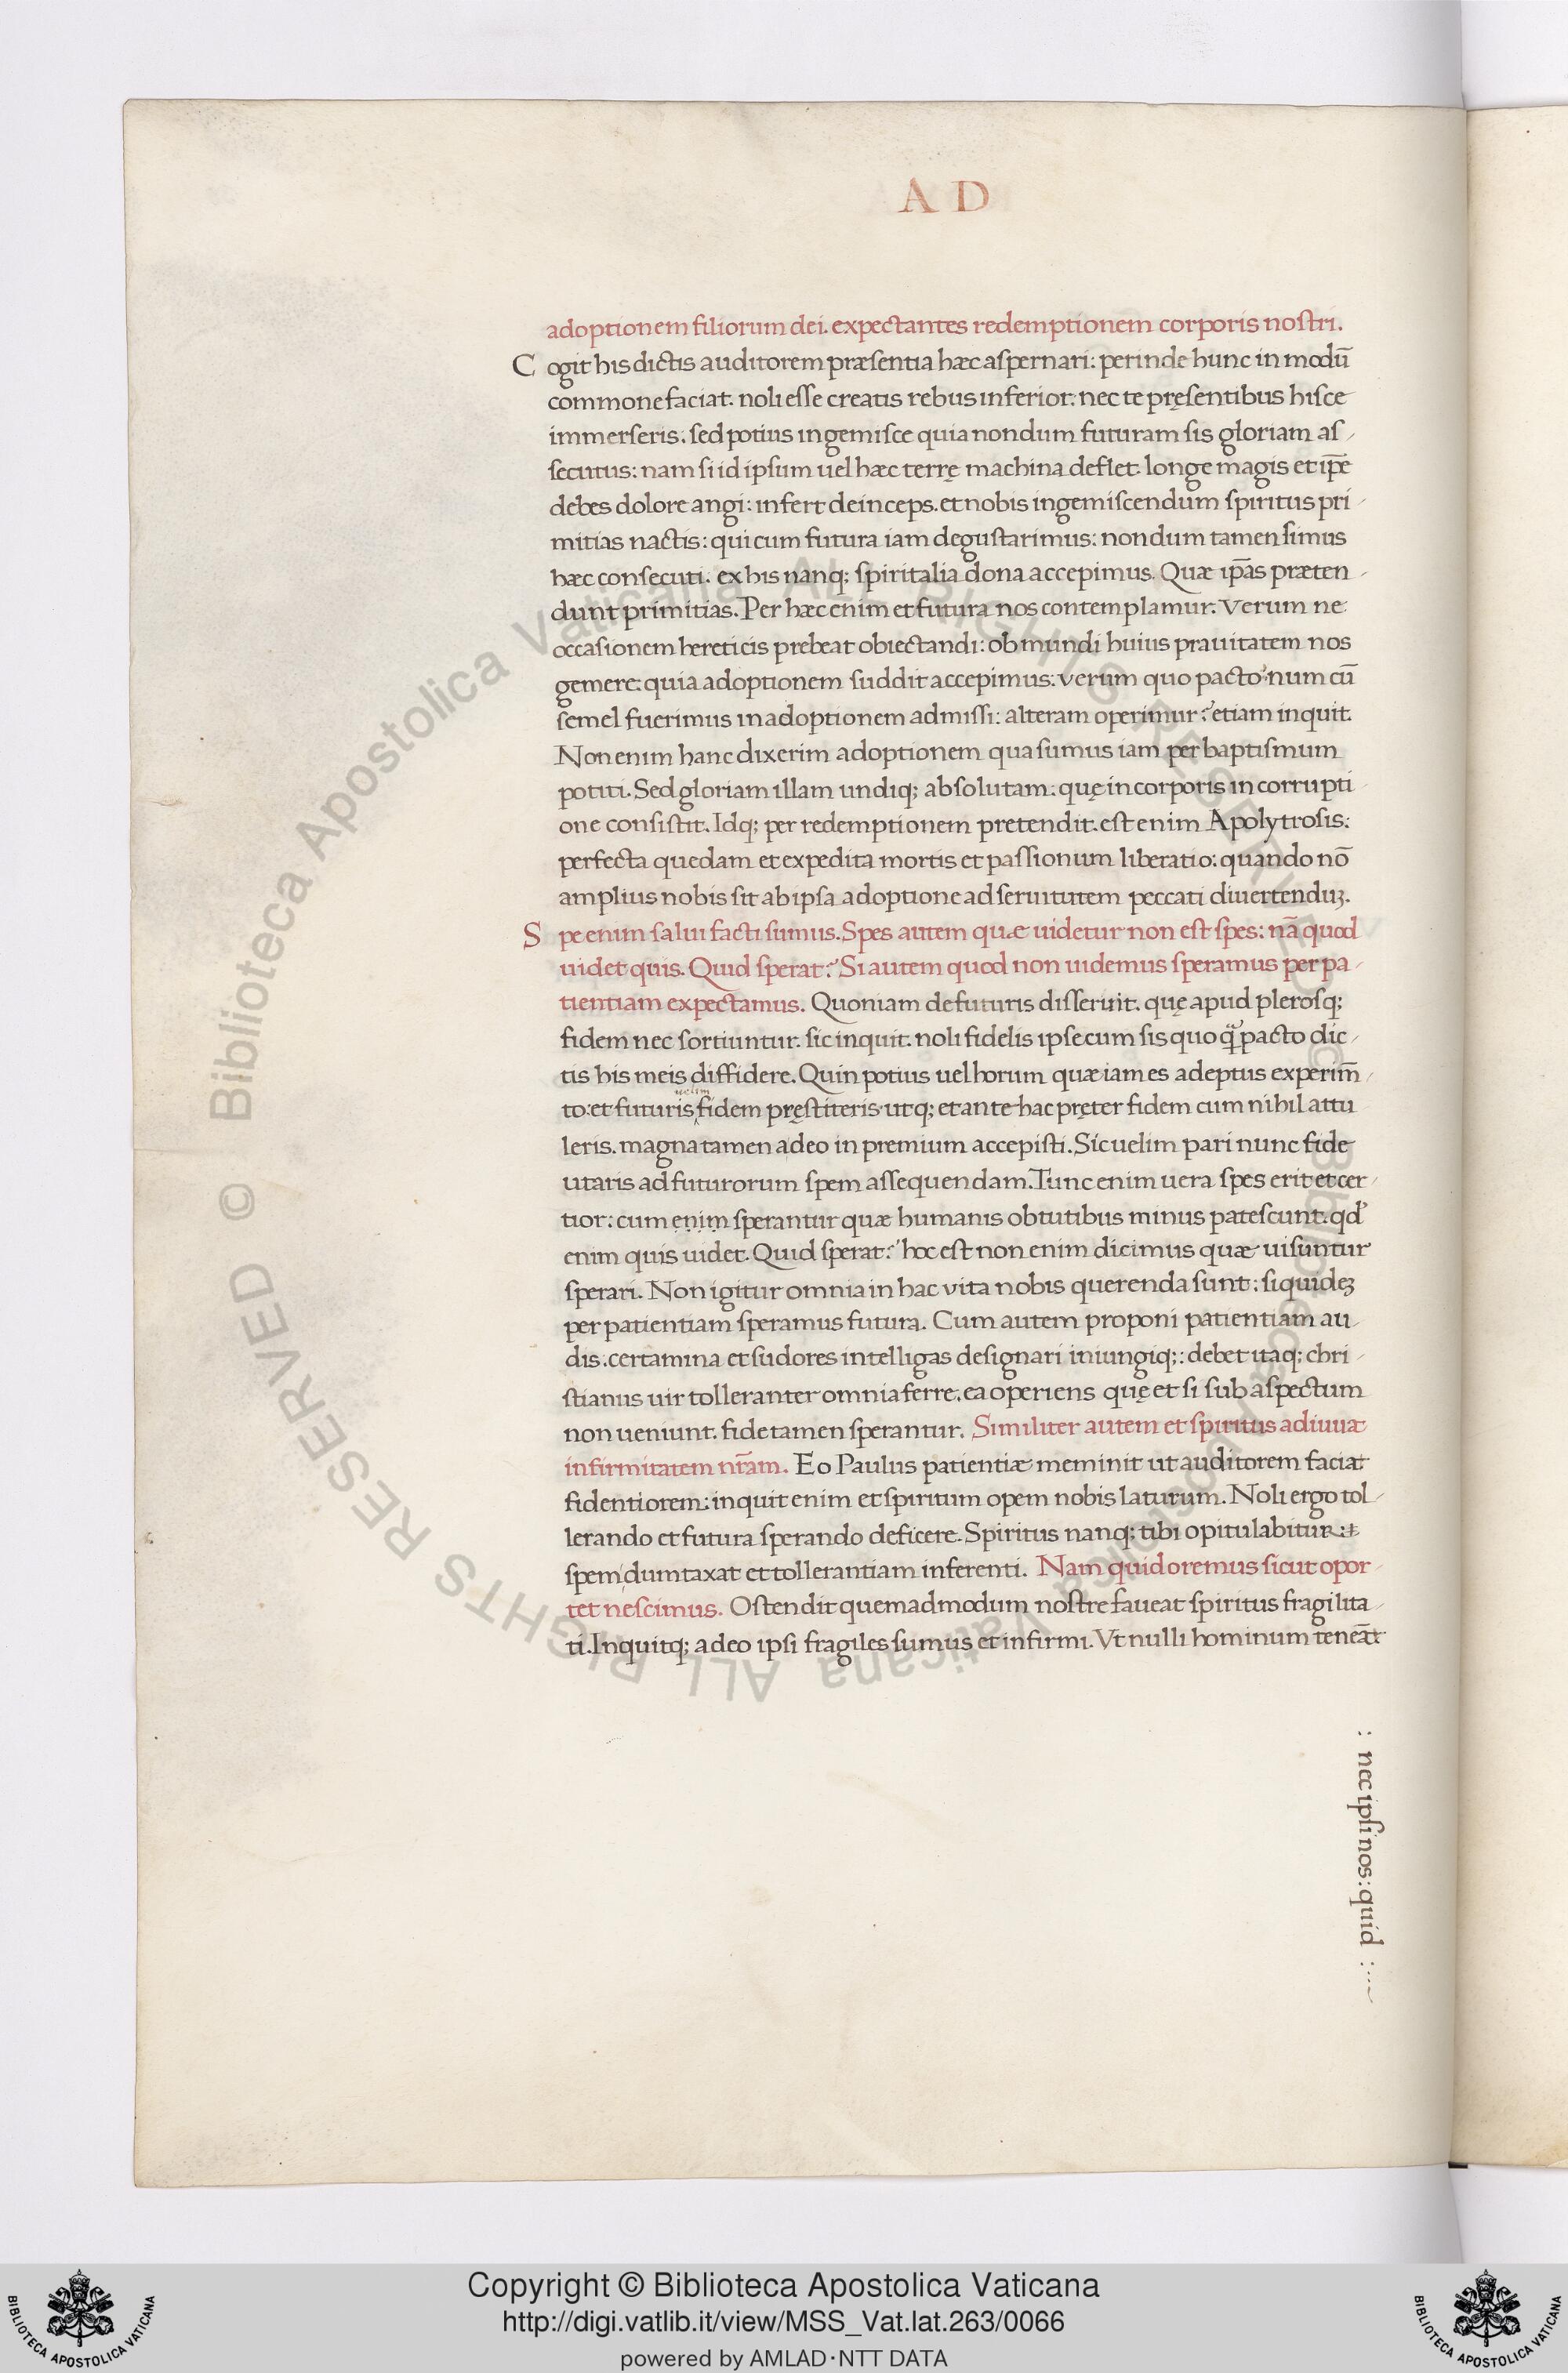 A D
adoptionem filiorum dei. expectantes redemptionem corporis nostri.
Cogit his dictis auditorem præsentia hæc aspernari: perinde hunc in modū
commonefaciat. noli esse creatis rebus inferior: nec te pręsentibus hisce
immerseris. sed potius ingemisce quia nondum futuram sis gloriam as-
secutus: nam si id ipsum uel hæc terrę machina deflet. longe magis et ip̄e
debes dolore angi: infert deinceps. et nobis ingemiscendum spiritus pri-
mitias nactis: qui cum futura iam degustarimus: nondum tamen simus
hæc consecuti. ex his nanq; spiritalia dona accepimus. Quæ ip̄as præten-
dunt primitias. Per hæc enim et futura nos contemplamur. Verum ne
occasionem hereticis prebeat obiectandi: ob mundi huius prauitatem nos
gemere: quia adoptionem suddit accepimus: verum quo pacto? num cū
semel fuerimus in adoptionem admissi: alteram operimur? etiam inquit.
Non enim hanc dixerim adoptionem qua sumus iam per baptismum
potiti. Sed gloriam illam undiq; absolutam. quę in corporis incorrupti-
one consistit. Idq; per redemptionem pretendit. est enim Apolytrosis:
perfecta quedam et expedita mortis et passionum liberatio: quando nō
amplius nobis sit ab ipsa adoptione ad seruitutem peccati diuertenduꝫ.
Spe enim salui facti sumus. Spes autem quæ uidetur non est spes: nā quod
uidet quis. Quid sperat? Si autem quod non uidemus speramus per pa-
tientiam expectamus. Quoniam de futuris disseruit. quę apud plerosq;
fidem nec sortiuntur. sic inquit. noli fidelis ipse cum sis quoq̃ pacto dic-
tis his meis diffidere. Quin potius uel horum quæ iam es adeptus experim̄-
uelim
to: et futuris fidem pręstiteris utq; et ante hac pręter fidem cum nihil attu
leris. magna tamen adeo in premium accepisti. Sic uelim pari nunc fide
utaris ad futurorum spem assequendam. Tunc enim uera spes erit et cer-
tior: cum enim sperantur quæ humanis obtutibus minus patescunt. qd'
enim quis uidet. Quid sperat? hoc est non enim dicimus quæ uisuntur
sperari. Non igitur omnia in hac vita nobis querenda sunt: siquideꝫ
per patientiam speramus futura. Cum autem proponi patientiam au-
dis. certamina et sudores intelligas designari iniungiq;: debet itaq; chri-
stianus uir tolleranter omnia ferre. ea operiens quę et si sub aspectum
non ueniunt. fide tamen sperantur. Similiter autem et spiritus adiuuat
infirmitatem nr̄am. Eo Paulus patientiæ meminit ut auditorem faciat
fidentiorem: inquit enim et spiritum opem nobis laturum. Noli ergo tol-
lerando et futura sperando deficere. Spiritus nanq; tibi opitulabitur
spem dumtaxat et tollerantiam inferenti. Nam quid oremus sicut opor-
tet nescimus. Ostendit quemadmodum nostre faueat spiritus fragilita-
ti. Inquitq; adeo ipsi fragiles sumus et infirmi. Vt nulli hominum teneāt
: nec ipsi nos: quid :
© Biblioteca Apostolica Vaticana ALL RIGHTS RESERVED
© Biblioteca Apostolica Vaticana ALL RIGHTS RESERVED
BIBLIOTECA APOSTOLICA VATICANA
Copyright © Biblioteca Apostolica Vaticana
http://digi.vatlib.it/view/MSS_Vat.lat.263/0066
powered by AMLAD·NTT DATA
BIBLIOTECA APOSTOLICA VATICANA